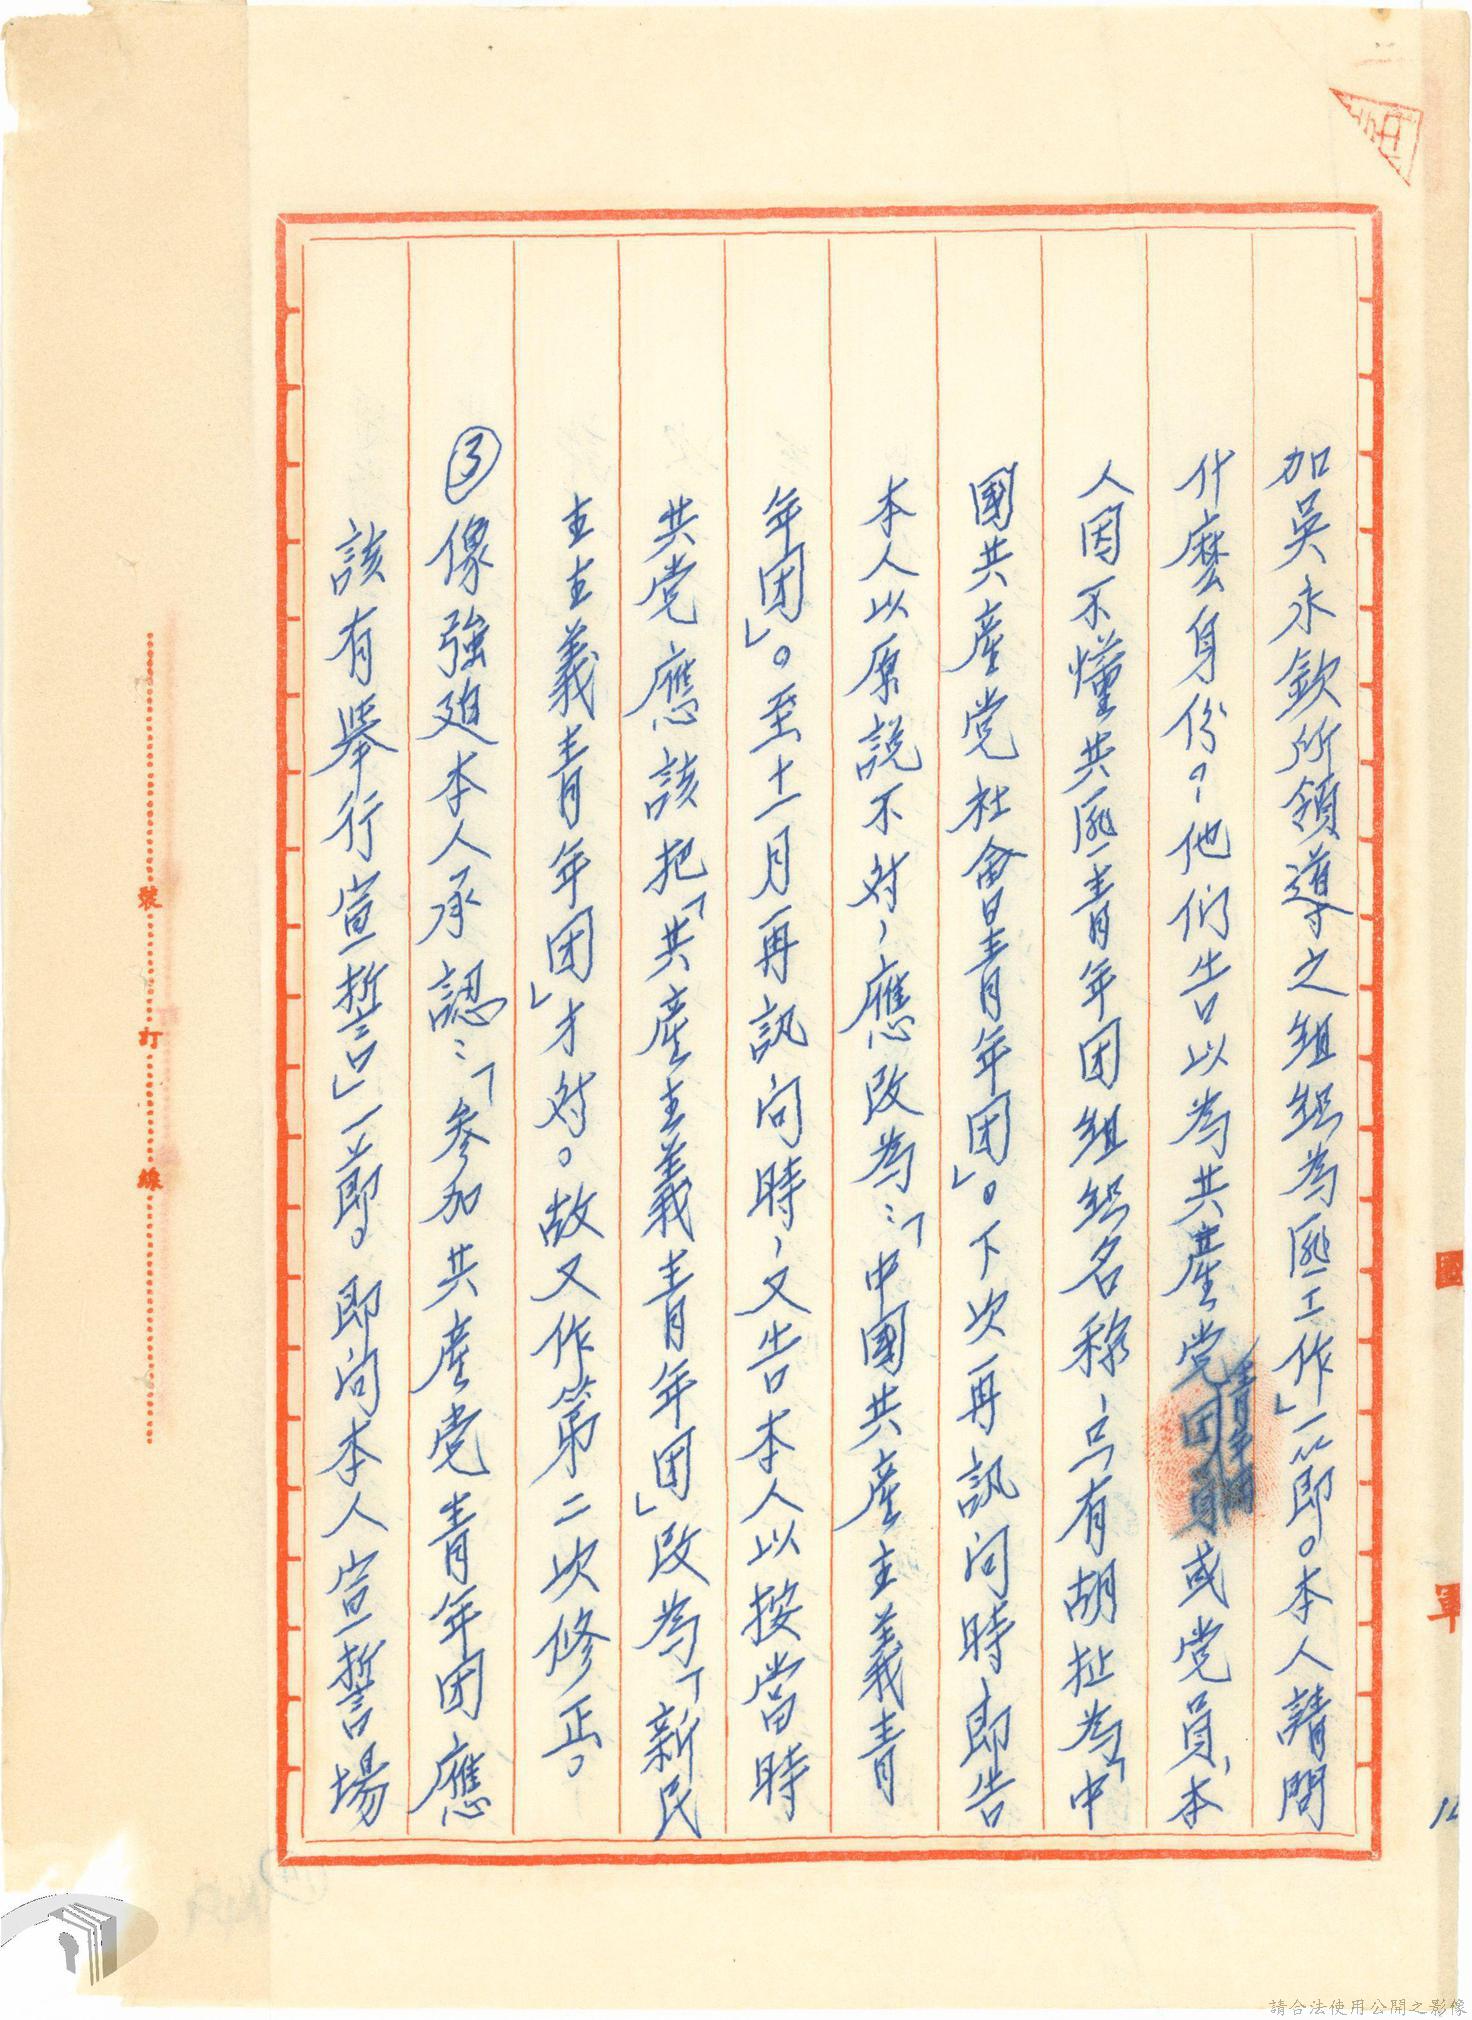 加吳永欽所領導之組織為匪工作」一節。本人請問
什麼身份?他們告以為共產党青年團或党員,本
人因不懂共匪青年团組織名稱,只有胡扯為「中
國共產党社會青年团」。下次再訊问時,即告
本人以原説不对,應改為:「中國共產主義青
年团」。至十一月再訊问時,又告本人以按當時
共党應該把「共產主義青年团」改為「新民
主主義青年团」才对。故又作第二次修正。
③像強廹本人承認:「参加共產党青年团應
該有舉行宣誓」一節。即问本人宣誓場
裝訂線
國軍
請合法使用公開之影像